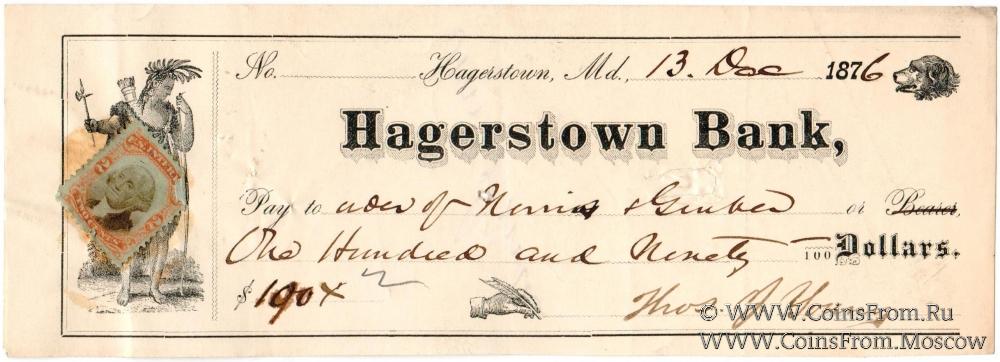 No. Hagerstown, Md., 13. Dec 1876
Hagerstown Bank,
Pay to order of Norris & Gruber or Bearer,
One Hundred and Ninety — /100 Dollars.
$190 x
Thos.
© www.CoinsFrom.Ru
www.CoinsFrom.Moscow